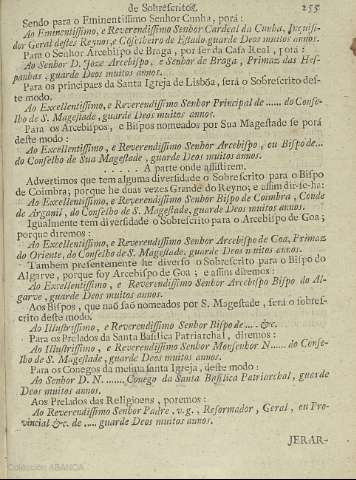 de Sobrescritos.
255
Sendo para o Eminentissimo Senhor Cunha, porá:
Ao Eminentissimo, e Reverendissimo Senhor Cardeal da Cunha, Inquisi-
dor Geral destes Reynos, e Conselheiro de Estado, guarde Deos muitos annos.
Para o Senhor Arcebispo de Braga, por ser da Casa Real, porá:
Ao Senhor D. Joze Arcebispo, e Senhor de Braga, Primaz das Hes-
panhas, guarde Deos muitos annos.
Para os principaes da Santa Igreja de Lisbõa, será o Sobrescrito des-
te modo.
Ao Excellentissimo, e Reverendissimo Senhor Principal de ...... do Conse-
lho de S. Magestade, guarde Deos muitos annos.
Para os Arcebispos, e Bispos nomeados por Sua Magestade se porá
deste modo:
Ao Excellentissimo, e Reverendissimo Senhor Arcebispo, ou Bispo de...
do Conselho de Sua Magestade, guarde Deos muitos annos.
. . . . . . A parte onde assistirem.
Advertimos que tem alguma diversidade o Sobrescrito para o Bispo
de Coimbra; porque he duas vezes Grande do Reyno; e assim dir-se-ha:
Ao Excellentissimo, e Reverendissimo Senhor Bispo de Coimbra, Conde
de Arganil, do Conselho de S. Magestade, guarde Deos muitos annos.
Igualmente tem diversidade o Sobrescrito para o Arcebispo de Goa;
porque diremos:
Ao Excellentissimo, e Reverendissimo Senhor Arcebispo de Goa, Primaz
do Oriente, do Conselho de S. Magestade, guarde Deos muitos annos.
Tambem presentemente he diverso o Sobrescrito para o Bispo do
Algarve, porque foy Arcebispo de Goa; e assim diremos:
Ao Excellentissimo, e Reverendissimo Senhor Arcebispo Bispo do Al-
garve, guarde Deos muitos annos.
Aos Bispos, que naõ saõ nomeados por S. Magestade, será o sobres-
crito deste modo.
Ao Illustrissimo, e Reverendissimo Senhor Bispo de .... &c.
Para os Prelados da Santa Basilica Patriarchal, diremos:
Ao Illustrissimo, e Reverendissimo Senhor Monsenhor N...... do Conse-
lho de S. Magestade, guarde Deos muitos annos.
Para os Conegos da mesma santa Igreja, deste modo:
Ao Senhor D. N....... Conego da Santa Basilica Patriarchal, guarde
Deos muitos annos.
Aos Prelados das Religioens, poremos:
Ao Reverendissimo Senhor Padre, v.g., Reformador, Geral, ou Pro-
vincial &c. de .... guarde Deos muitos annos.
JERAR-
Colección ABANCA